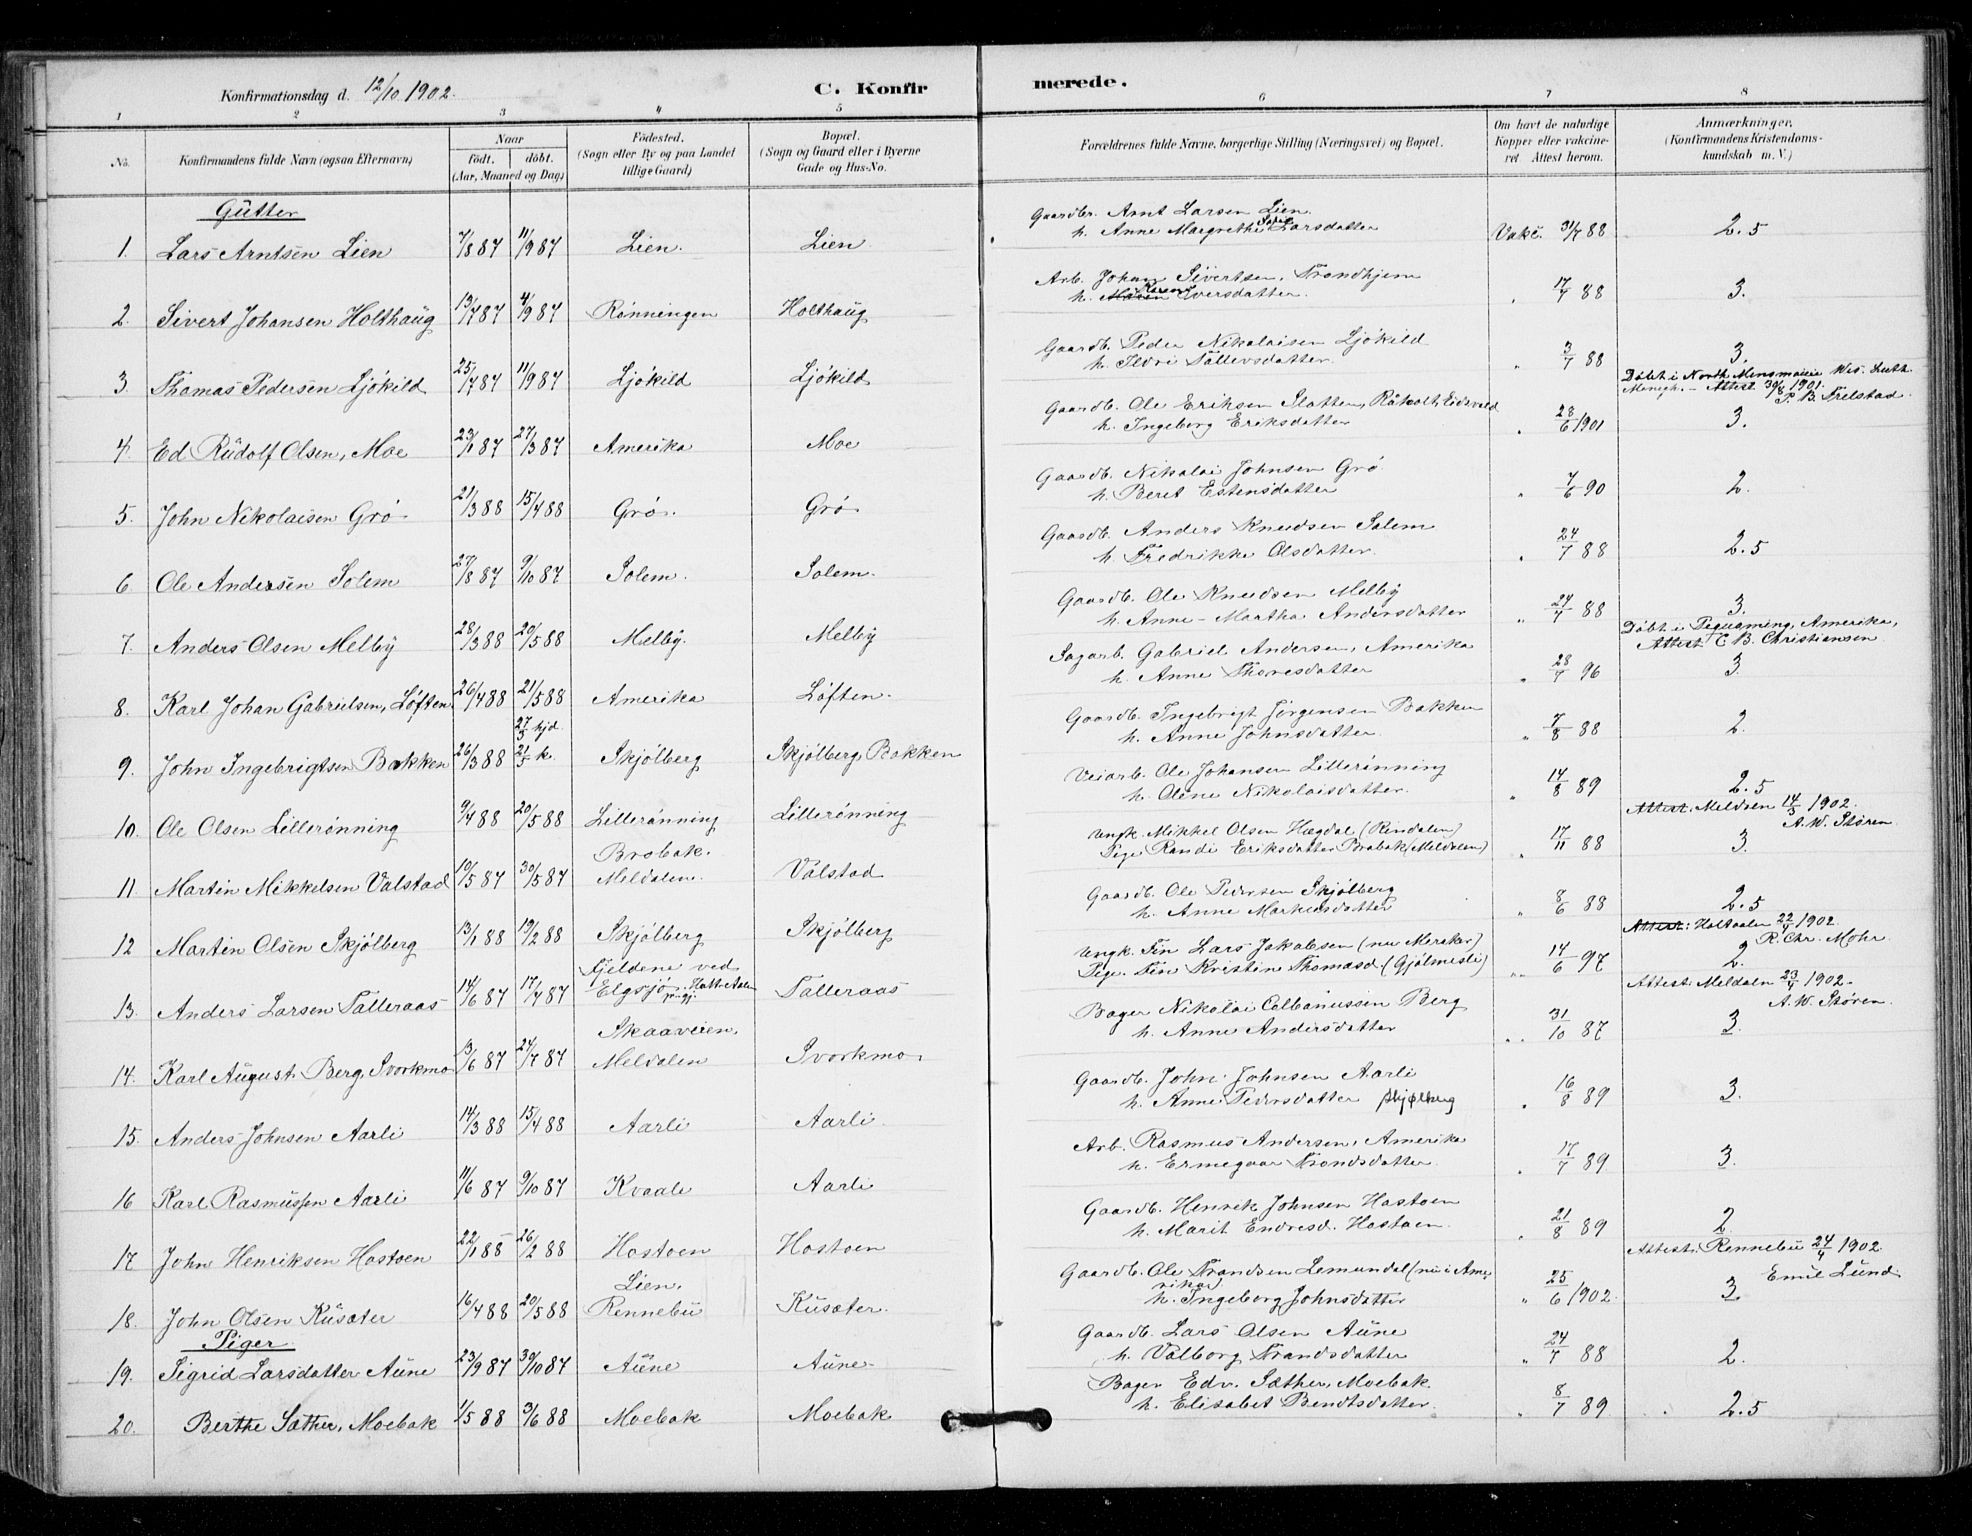 Konfirmationsdag d. 12/10 1902. C. Konfirmerede.
1 2 3 4 5 6 7 8
No. Konfirmandens fulde Navn (ogsaa Efternavn) Naar Födt. döbt. (Aar, Maaned og Dag) Födested. (Sogn eller By og paa Landet tillige Gaard) Bopæl. (Sogn og Gaard eller i Byerne Gade og Hus-No. Forældrenes fulde Navne, borgerlige Stilling (Næringsvei) og Bopæl. Om havt de naturlige Kopper eller vakcineret. Attest herom. Anmærkninger. (Konfirmandens Kristendomskundskab m. V.)
Gutter
Gaardbr. Arnt Larsen Lien
1. Lars Arntsen Lien 7/8 87 11/9 87 Lien. Lien. h. Anne Margrethe Larsdatter Vakc. 31/7 88 2.5
Arb. Johan Sivertsen, Trondhjem
2. Sivert Johansen Holthaug 13/7 87 4/9 87 Rønningen Holthaug h. Iversdatter. " 17/7 88 3.
Gaardb. Peder Nikolaisen Ljøkild
3 Thomas Pedersen Ljøkild 25/7 87 11/9 87 Ljøkild Ljøkild h. Ildri Tollevsdatter. " 3/7 88 3.
Døbt i North Menomonie Wis. Luth. Menigh. - Attest 30/8 1901. P. B. Trelstad
Gaardb. Ole Eriksen Slatten, Råholt, Eidsvold
4. Ed Rudolf Olsen, Moe 23/1 87 27/3 87 Amerika Moe h. Ingeborg Eriksdatter " 28/6 1901 3.
Gaardb. Nikolai Johnsen Grø
5. John Nikolaisen Grø 21/3 88 15/4 88 Grø. Grø h. Beret Estensdatter " 7/6 90 2.
Gaardb. Anders Knudsen Solem
6 Ole Andersen Solem 27/8 87 9/10 87 Solem. Solem. h. Fredrikke Olsdatter. " 24/7 88 2.5
Gaardb. Ole Knudsen Melby
7. Anders Olsen Melby 28/3 88 20/5 88 Melby. Melby h. Anne-Martha Andersdatter " 24/7 88 3.
Døbt i Pequaming, Amerika, Attest C B. Christiansen
Sagarb. Gabriel Andersen, Amerika
8. Karl Johan Gabrielsen, Løften 26/4 88 21/5 88 Amerika Løften. h. Anne Thoresdatter " 28/7 96 3.
Gaardb. Ingebrigt Jørgensen Bakken
9. John Ingebrigtsen Bakken 26/3 88 27/3 hjd. 21/5 k. Skjølberg Skjølberg, Bakken h. Anne Johnsdatter. " 7/8 88 2.
Veiarb. Ole Johansen Lillerønning
10. Ole Olsen Lillerønning 9/4 88 20/5 88 Lillerønning Lillerønning h. Oline Nikolaisdatter. " 14/8 89 2.5
Attest: Meldalen 14/3 1902. A. W. Støren
Ungk. Mikkel Olsen Hægdal (Rindalen)
11. Martin Mikkelsen Valstad 10/5 87 30/5 87 Brobak. Meldalen. Valstad Pige Randi Eriksdatter Brobak (Meldalen) " 17/11 88 3.
Gaardb. Ole Pedersen Skjølberg
12 Martin Olsen Skjølberg 13/1 88 19/2 88 Skjølberg Skjølberg h. Anne Markusdatter " 8/6 88 2.5
Attest: Holtaalen 22/4 1902. R. Chr. Mohr.
Ungk. Tin Lars Jakobsen (nu Meraker)
13. Anders Larsen Talleraas 14/6 87 17/7 87 Gjeldene ved Elgsjø Talleraas Pige. Tin Kristin Thomasd (Gjølmesli) " 14/6 97 2.
Attest: Meldalen 23/4 1902. A. W. Støren.
Bager Nikolai Colbanussen Berg
14. Karl August Berg, Svorkmo 13/6 87 24/7 87 Skaaveien. Meldalen Svorkmo. h. Anne Andersdatter " 31/10 87 3.
Gaardb. John Johnsen Aarli
15. Anders Johnsen Aarli 14/3 88 15/4 88 Aarli Aarli. h. Anne Pedersdatter Skjølberg " 16/8 89 3.
Arb. Rasmus Andersen, Amerika
16 Karl Rasmussen Aarli 11/6 87 9/10 87 Kvaale Aarli h. Ermegaar Trondsdatter. " 17/7 89 3.
Gaardb. Henrik Johnsen Hostoen
17 John Henriksen Hostoen 22/1 88 26/2 88 Hostoen Hostoen h. Marit Endresd. Hostoen. " 21/8 89 2
Attest: Rennebu 24/4 1902. Emil Lund.
Gaardb. Ole Trondsen Lemundal (nu i Amerika)
18. John Olsen Kusæter 16/4 88 20/5 88 Lien. Rennebu Kusæter. h. Ingeborg Johnsdatter " 25/6 1902. 3.
Piger.
Gaardb. Lars Olsen Aune
19. Sigrid Larsdatter Aune 23/9 87 30/10 87 Aune Aune. h. Valborg Trondsdatter " 24/7 88 2.
Bager Edv. Sæther, Moebak.
20. Berthe Sæther, Moebak 1/5 88 3/6 88 Moebak Moebak h. Elisabet Bendtsdatter. " 8/7 89 2.5